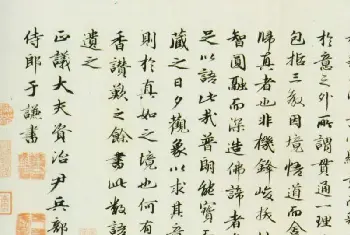 於意之外所謂貫通一理
包括三教因境悟道而舍
歸真者也非機鋒峻捩
智圓融而深造佛諦者
足以語此我普朗能寶
藏之日夕觀象以求其
則於真如之境也何有
香讚歎之餘書此數語
遺之
正議大夫資治尹兵部
侍郎于謙書